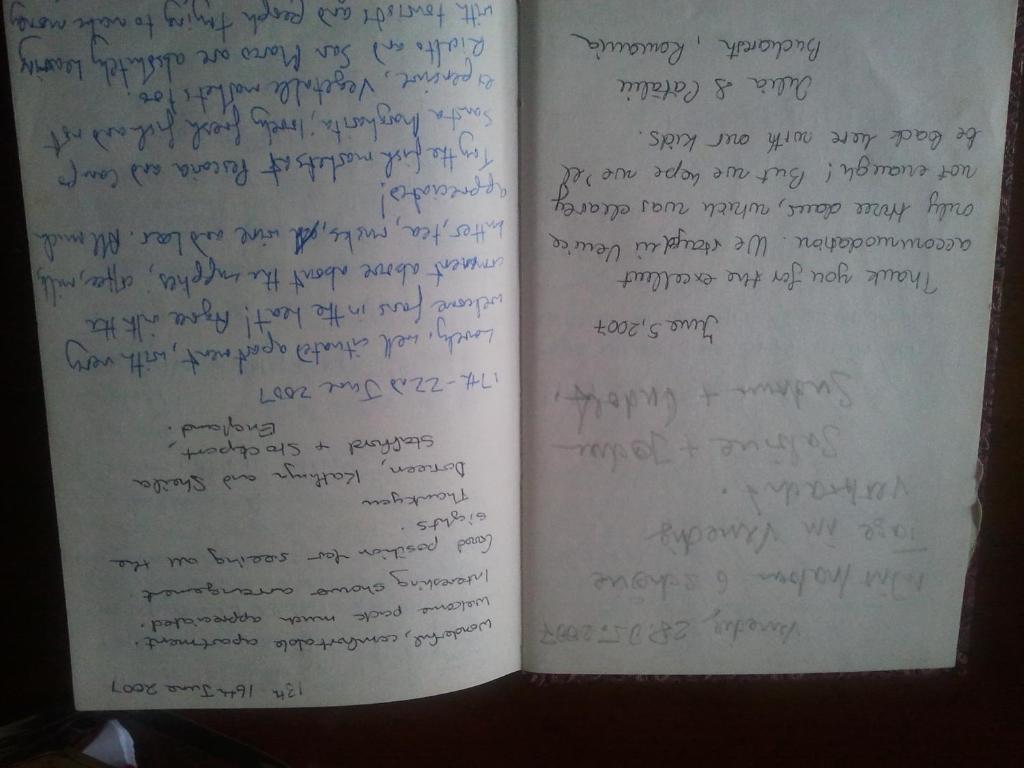 Venedig, 28.05.2007
Wir haben 6 schöne
Tage in Venedig
verbracht.
Sabine +
Gudrun + Rudolf,
June 5, 2007
Thank you for the excellent
accommodation. We stayed in Venice
only three days, which was clearly
not enough! But we hope we'el
be back here with our kids.
Iulia & Cătălin
Bucharest, Romania
13th 16th June 2007
Wonderful, comfortable apartment.
Welcome pack much appreciated.
Interesting shower arrangement
Good position for seeing all the
sights.
Thankyou
Doreen, Kathryn and Sheila
Stafford + Stockport,
England.
17th - 22nd June 2007
Lovely, well situated apartment, with very
welcome fans in the heat! Agree with the
comment above about the supplies, coffee, milk,
butter, tea, rusks, wine and beer. All much
appreciated!
Try the fish markets at Pescaria and Camp
Santa Margharita; lovely fresh fish and not
expensive, Vegetable markets too.
Rialto and San Marco are absolutely heaving
with tourists and people trying to make money